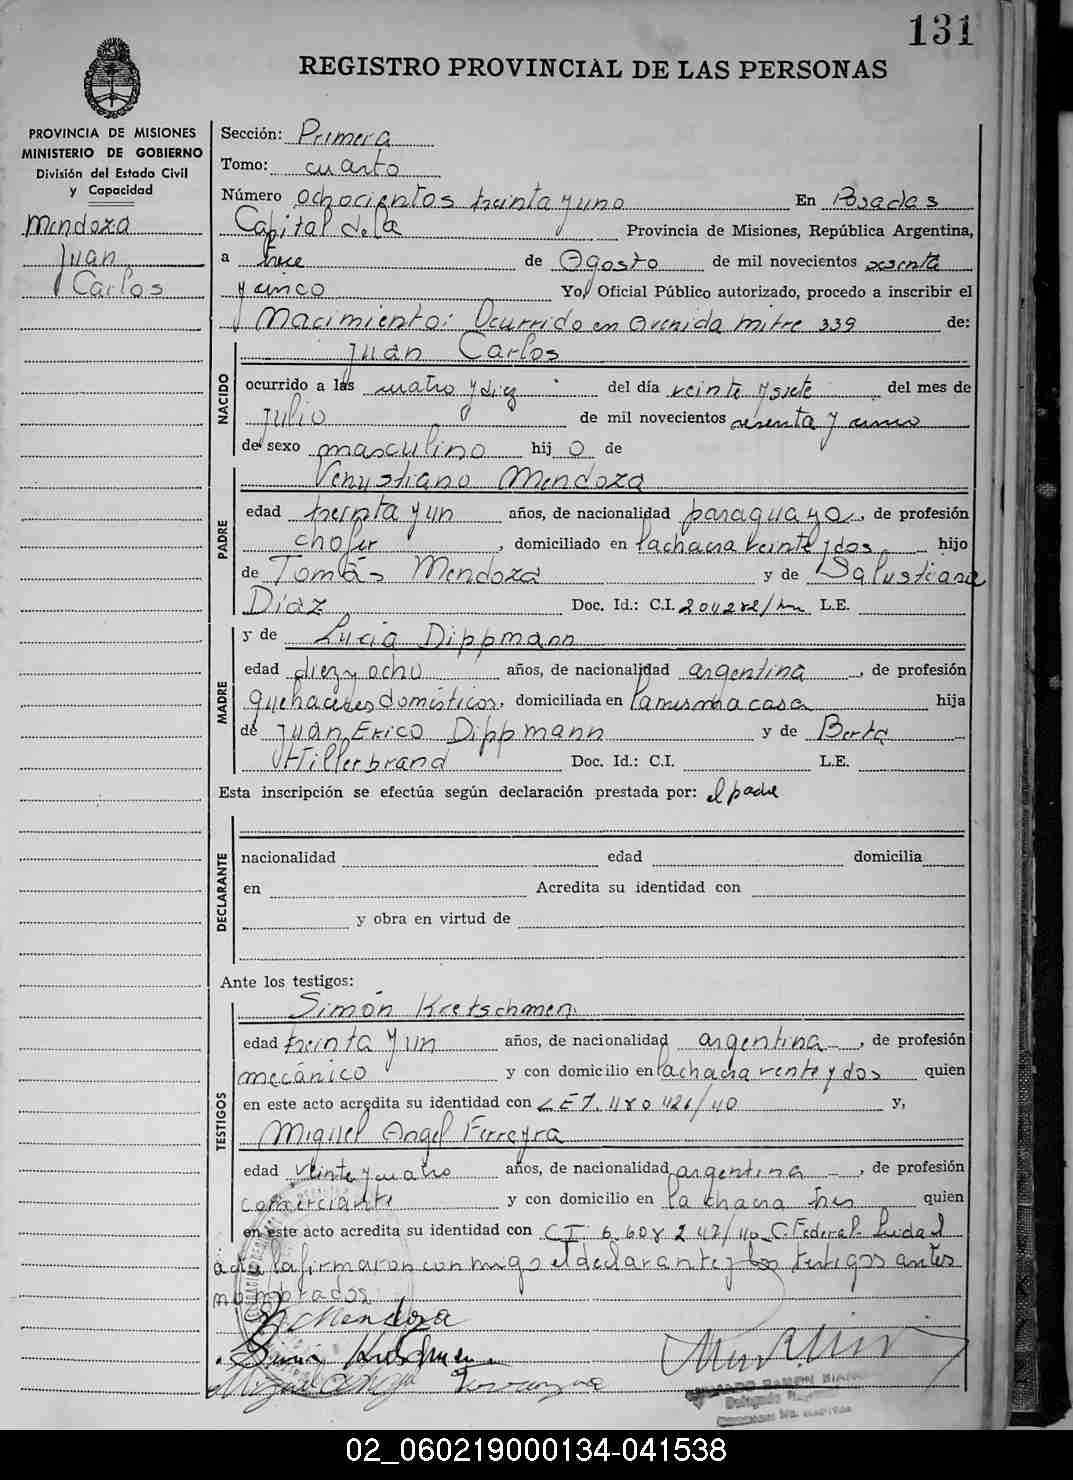 131
REGISTRO PROVINCIAL DE LAS PERSONAS
PROVINCIA DE MISIONES
MINISTERIO DE GOBIERNO
División del Estado Civil
y Capacidad
Mendoza
Juan
Carlos
Sección: Primera
Tomo: cuarto
Número ochocientos treinta y uno En Posadas
Capital de la Provincia de Misiones, República Argentina,
a trece de Agosto de mil novecientos sesenta
y cinco Yo, Oficial Público autorizado, procedo a inscribir el
Nacimiento: Ocurrido en Avenida Mitre 339 de:
NACIDO
Juan Carlos
ocurrido a las cuatro y diez del día veinte y siete del mes de
Julio de mil novecientos sesenta y cinco
de sexo masculino hij o de
PADRE
Venustiano Mendoza
edad treinta y un años, de nacionalidad paraguaya, de profesión
chofer, domiciliado en la chacra veinte y dos hijo
de Tomás Mendoza y de Salustiana
Díaz Doc. Id.: C.I. L.E.
MADRE
y de Lucia Dippmann
edad diez y ocho años, de nacionalidad argentina, de profesión
quehaceres domésticos, domiciliada en la misma casa hija
de Juan Erico Dippmann y de Berta
Hillerbrand Doc. Id.: C.I. L.E.
Esta inscripción se efectúa según declaración prestada por: el padre
DECLARANTE
nacionalidad edad domicilia
en Acredita su identidad con
y obra en virtud de
Ante los testigos:
TESTIGOS
Simón Kretschmen
edad treinta y un años, de nacionalidad argentina, de profesión
mecánico y con domicilio en la chacra veinte y dos quien
en este acto acredita su identidad con y,
Miguel Angel Ferreyra
edad veinte y cuatro años, de nacionalidad argentina, de profesión
comerciante y con domicilio en la chacra tres quien
en este acto acredita su identidad con C.I. C. Federal. Leida el
acta la firmaron conmigo el declarante y los testigos antes
nombrados.
Mendoza
02_060219000134-041538